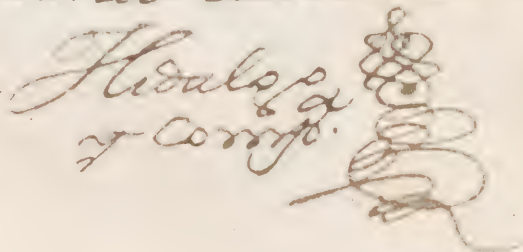 Hidalgo
y Compª.